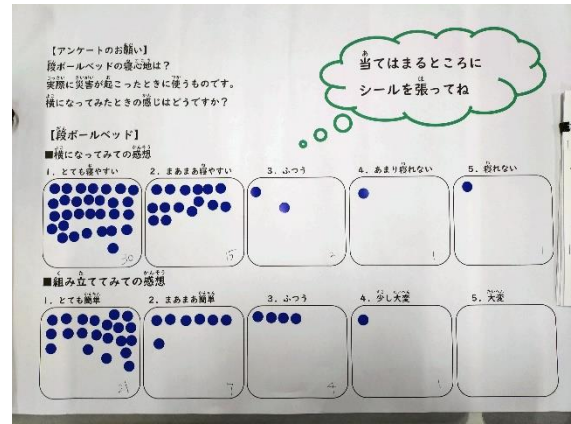 【アンケートのお願い】
段ボールベッドの寝心地は？
実際に災害が起こったときに使うものです。
横になってみたときの感じはどうですか？
当てはまるところに
シールを張ってね
【段ボールベッド】
■横になってみての感想
1．とても寝やすい
2．まあまあ寝やすい
3．ふつう
4．あまり寝れない
5．寝れない
30
15
2
1
1
■組み立ててみての感想
1．とても簡単
2．まあまあ簡単
3．ふつう
4．少し大変
5．大変
7
4
1